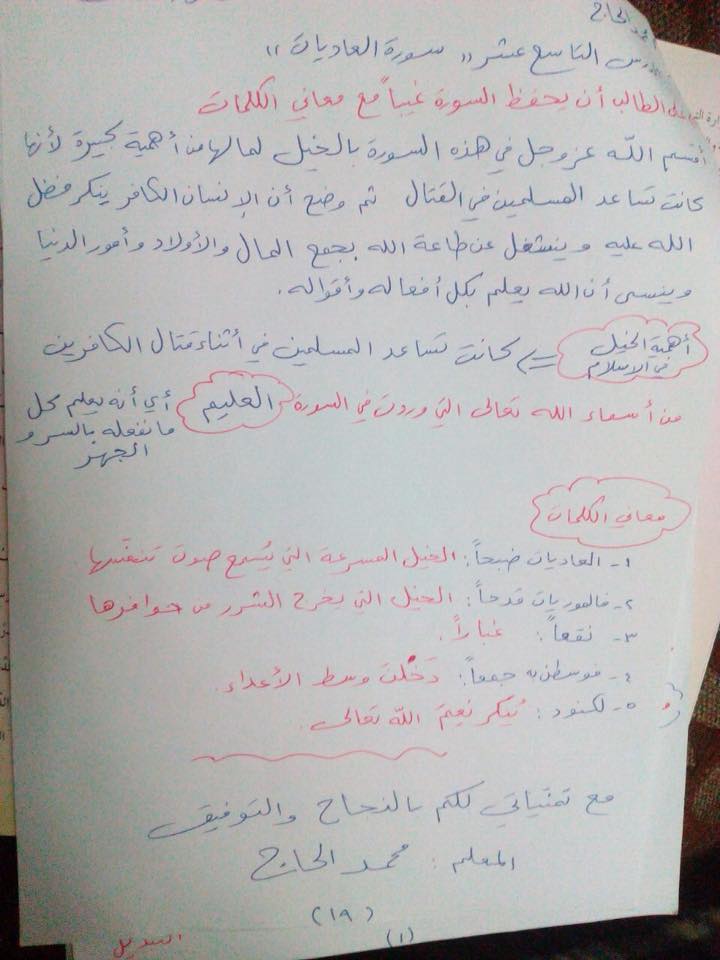 محمد الحاج
الدرس التاسع عشر "سورة العاديات"
على الطالب أن يحفظ السورة غيباً مع معاني الكلمات
أقسم الله عز وجل في هذه السورة بالخيل لما لها من أهمية كبيرة لأنها
كانت تساعد المسلمين في القتال ثم وضح أن الإنسان الكافر ينكر فضل
الله عليه وينشغل عن طاعة الله بجمع المال والأولاد وأمور الدنيا
وينسى أن الله يعلم بكل أفعاله وأقواله.
أهمية الخيل في الاسلام => كانت تساعد المسلمين في أثناء قتال الكافرين
من أسماء الله تعالى التي وردت في السورة العليم أي أنه يعلم كل
ما نفعله بالسر و
الجهر
معاني الكلمات
١- العاديات ضبحاً: الخيل المسرعة التي يُسمع صوت تنفّسها.
٢- فالموريات قدحاً: الخيل التي يخرج الشرر من حوافرها
٣- نقعاً: غباراً.
٤- فوسطن به جمعاً: دَخَلْنَ وسط الأعداء.
٥- لكنود: يُنكر نِعَمَ الله تعالى.
مع تمنّياتي لكم بالنجاح والتوفيق
المعلم: محمد الحاج
(١٩)
(١)